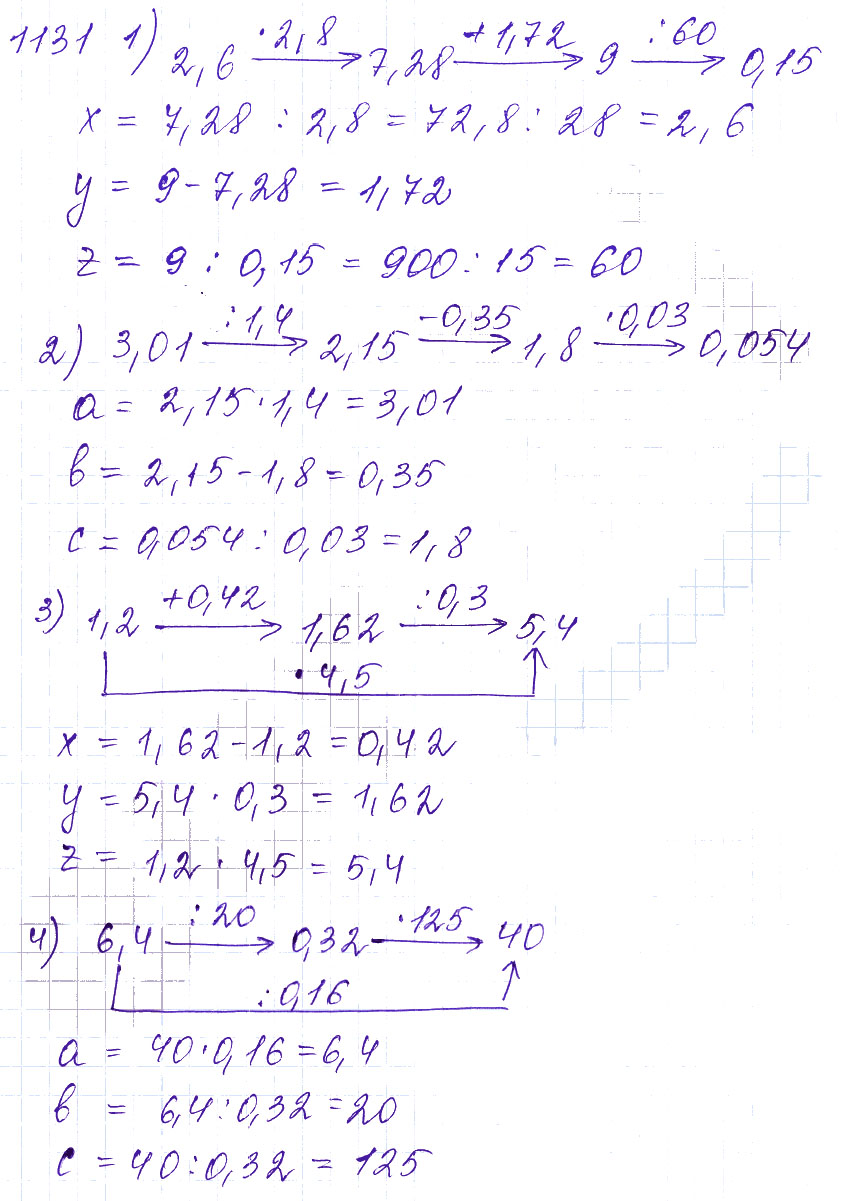 1131 1) 2,6 —·2,8→ 7,28 —+1,72→ 9 —:60→ 0,15
x = 7,28 : 2,8 = 72,8 : 28 = 2,6
y = 9 - 7,28 = 1,72
z = 9 : 0,15 = 900 : 15 = 60
2) 3,01 —:1,4→ 2,15 —-0,35→ 1,8 —·0,03→ 0,054
a = 2,15 · 1,4 = 3,01
в = 2,15 - 1,8 = 0,35
c = 0,054 : 0,03 = 1,8
3) 1,2 —+0,42→ 1,62 —:0,3→ 5,4
· 4,5
x = 1,62 - 1,2 = 0,42
y = 5,4 · 0,3 = 1,62
z = 1,2 · 4,5 = 5,4
4) 6,4 —:20→ 0,32 —·125→ 40
:0,16
a = 40 · 0,16 = 6,4
в = 6,4 : 0,32 = 20
c = 40 : 0,32 = 125